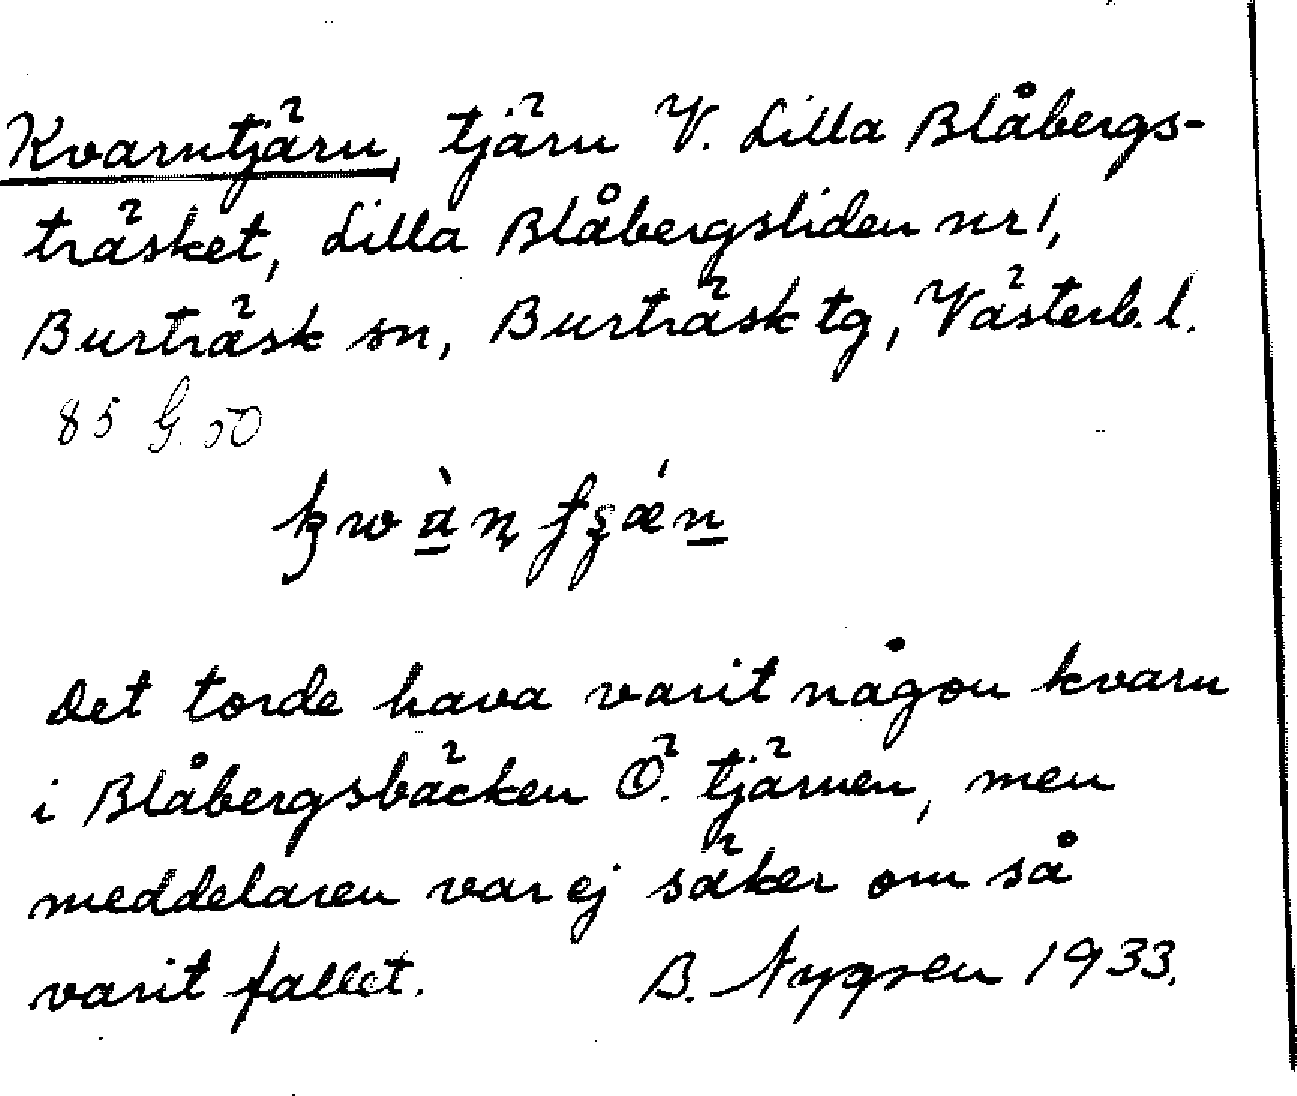 Kvarntjärn, tjärn V. Lilla Blåbergs-
träsket, Lilla Blåbergsliden nr 1,
Burträsk sn, Burträsk tg, Västerb. l.
85 G. 50
Det torde hava varit någon kvarn
i Blåbergsbäcken Ö. tjärnen, men
meddelaren var ej säker om så
varit fallet. B. Nygren 1933.